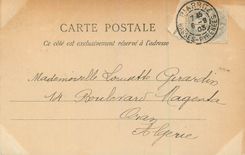 CARTE POSTALE
Ce côté est exclusivement réservé à l'adresse
BIARRITZ
7 35
6-9
03
BSES-PYRENEES
Mademoiselle Louisette Girardin
14 Boulevard Magenta
Oran
Algérie